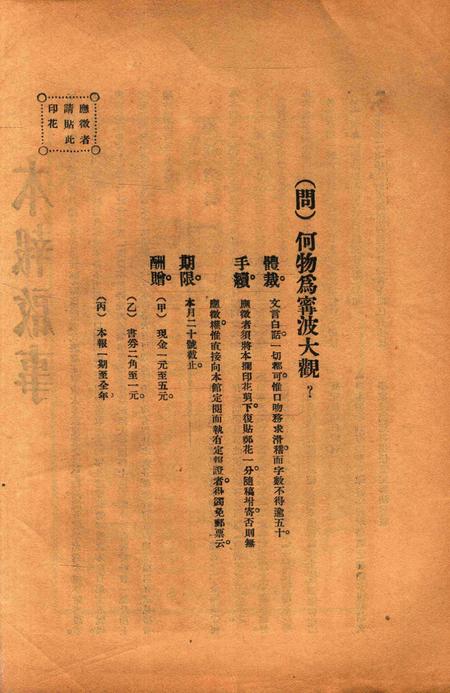 （問）何物爲甯波大觀？
體裁。文言白話一切都可。惟口吻務求滑稽而字數不得逾五十。
手續。應徵者須將本欄印花剪下。復貼郵花一分。隨稿坿寄。否則無
應徵權。惟直接向本館定閱而執有定報證者。得蠲免郵票云。
期限。本月二十號截止。
酬贈。（甲）現金一元至五元。
（乙）書劵二角至一元。
（丙）本報一期至全年。
應徵者
請貼此
印花
本報啟事